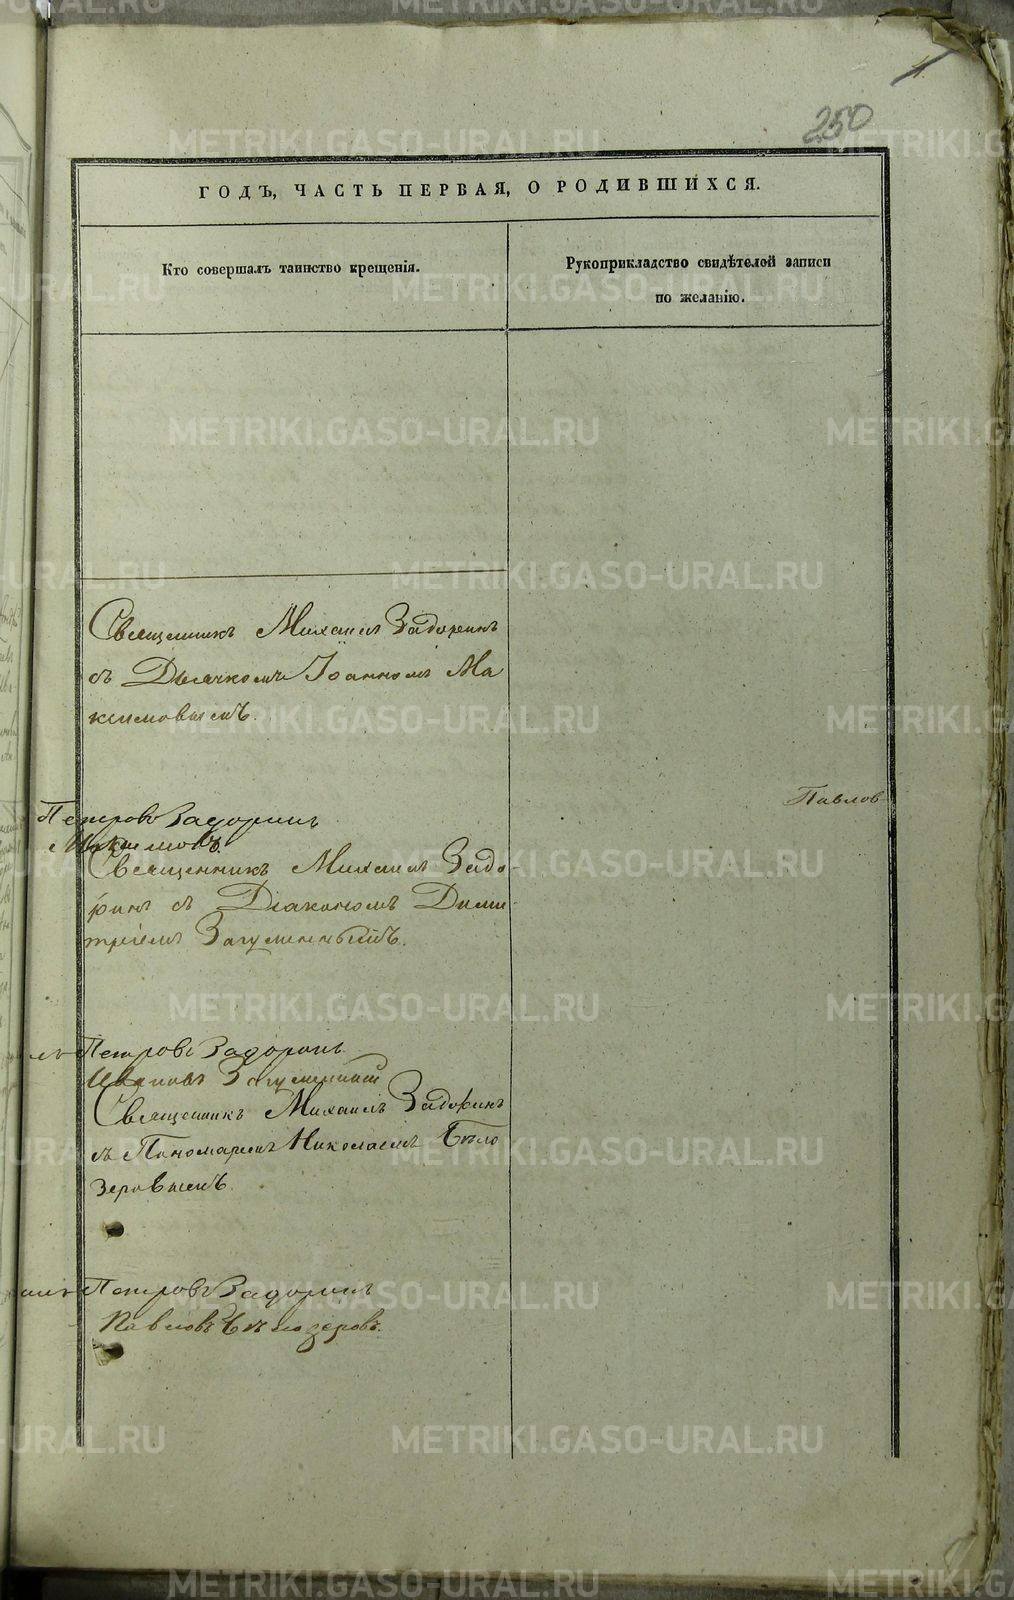 4.
250
ГОДЪ, ЧАСТЬ ПЕРВАЯ, О РОДИВШИХСЯ.
Кто совершалъ таинство крещенія.
Рукоприкладство свидѣтелей записи
по желанію.
Священникъ Михаилъ Задоринъ
съ Дьячкомъ Іоанномъ Ма
ксимовымъ.
Павлов
Петровъ Задоринъ
Максимовъ
Священникъ Михаилъ Задо-
ринъ съ Діакономъ Дими
тріемъ Загуменнымъ.
Петровъ Задоринъ
Ивановъ Загуменный
Священникъ Михаилъ Задоринъ
съ Пономаремъ Николаемъ Бѣло
зеровымъ.
Петровъ Задоринъ
Павловъ Бѣлозеровъ.
METRIKI.GASO-URAL.RU